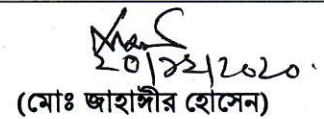 ২০/১২/২০২০
(মোঃ জাহাঙ্গীর হোসেন)